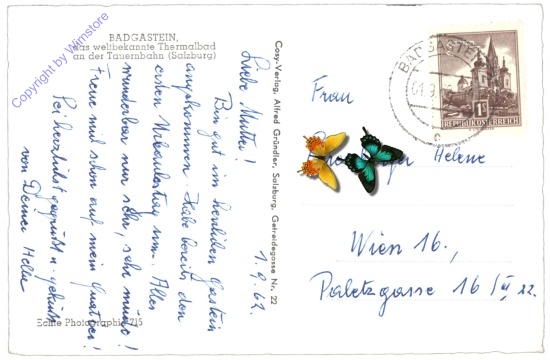 BADGASTEIN,
das weltbekannte Thermalbad
an der Tauernbahn (Salzburg)
Liebe Mutter!
Bin gut im herrlichen Gastein
angekommen. Habe bereits den
ersten Urlaubstag um. Alles
wunderbar nur sehr, sehr müde!
Freue mich schon auf mein Quartier!
Sei herzlichst gegrüßt u. geküßt
von Deiner
1.9.62
Cosy-Verlag, Alfred Gründler, Salzburg, Getreidegasse Nr. 22
Echte Photographie 715
BADGASTEIN
REPUBLIK ÖSTERREICH
Frau
Helene
Wien 16.,
Paletzgasse 16/III 22.
Copyright by Wimstore